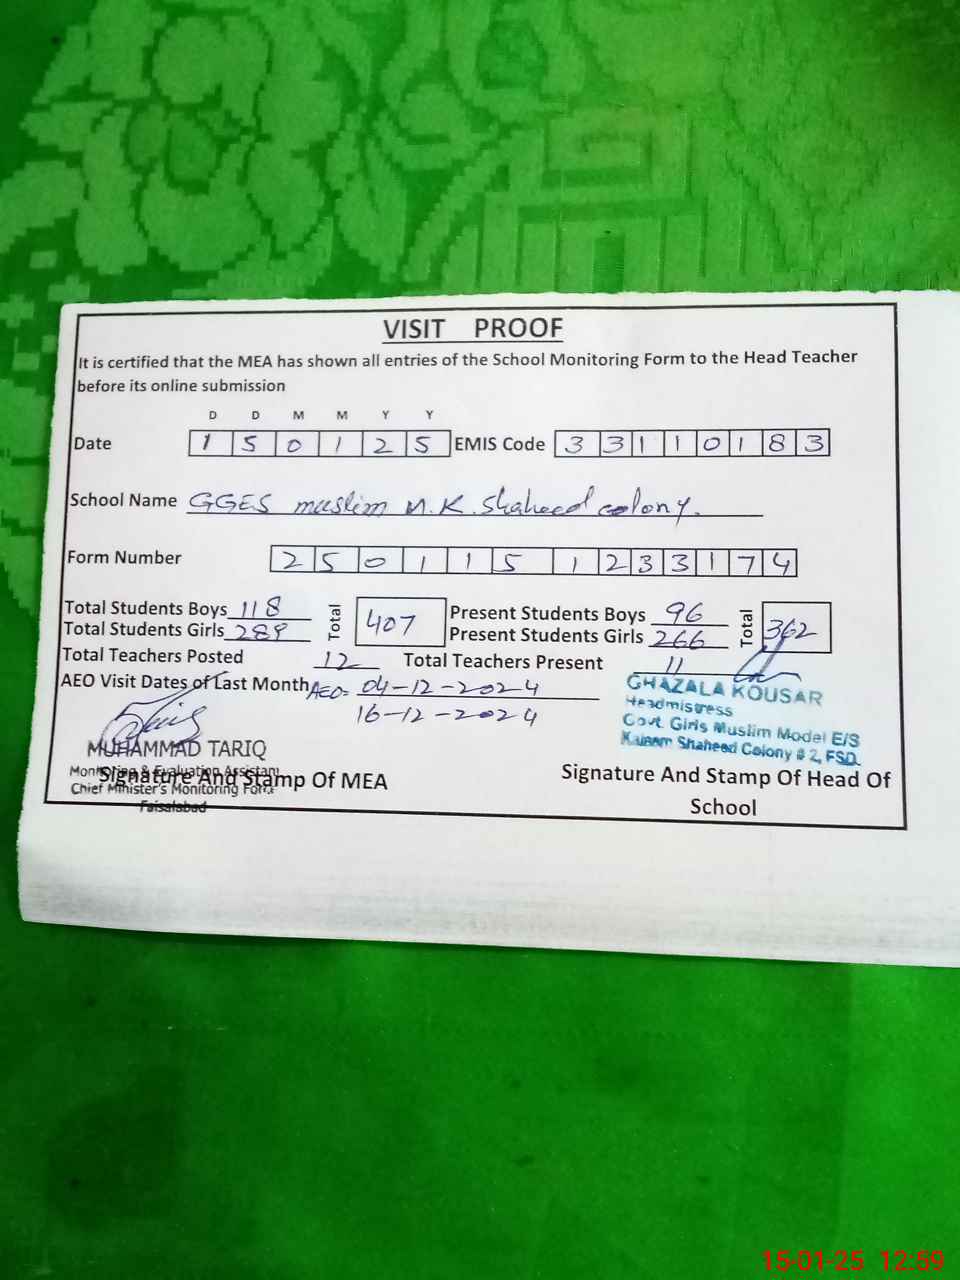 VISIT PROOF
It is certified that the MEA has shown all entries of the School Monitoring Form to the Head Teacher
before its online submission
D D M M Y Y
Date 1 5 0 1 2 5 EMIS Code 3 3 1 1 0 1 8 3
School Name GGES muslim M.K. Shaheed colony.
Form Number 2 5 0 1 1 5 1 2 3 3 1 7 4
Total Students Boys 118 Total 407 Present Students Boys 96 Total 362
Total Students Girls 289 Present Students Girls 266
Total Teachers Posted 12 Total Teachers Present 11
AEO Visit Dates of Last Month AEO= 04-12-2024
16-12-2024
GHAZALA KOUSAR
Headmistress
Govt. Girls Muslim Model E/S
Shaheed Colony # 2, FSD.
MUHAMMAD TARIQ
Monitoring & Evaluation Assistant
Chief Minister's Monitoring Force
Faisalabad
Signature And Stamp Of MEA
Signature And Stamp Of Head Of
School
15-01-25 12:59